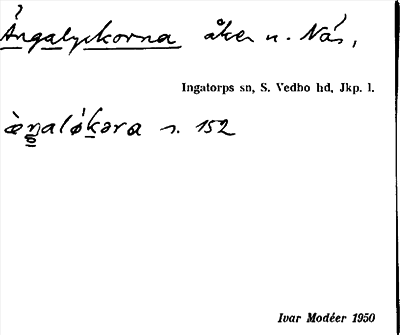 Ångalyckorna åker u. Näs,
Ingatorps sn, S. Vedbo hd, Jkp. l.
s. 152
Ivar Modéer 1950